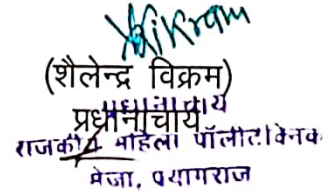 Vikram
(शैलेन्द्र विक्रम)
प्रधानाचार्य
प्रधानाचार्य
राजकीय महिला पॉलीटेक्निक
मेजा, प्रयागराज